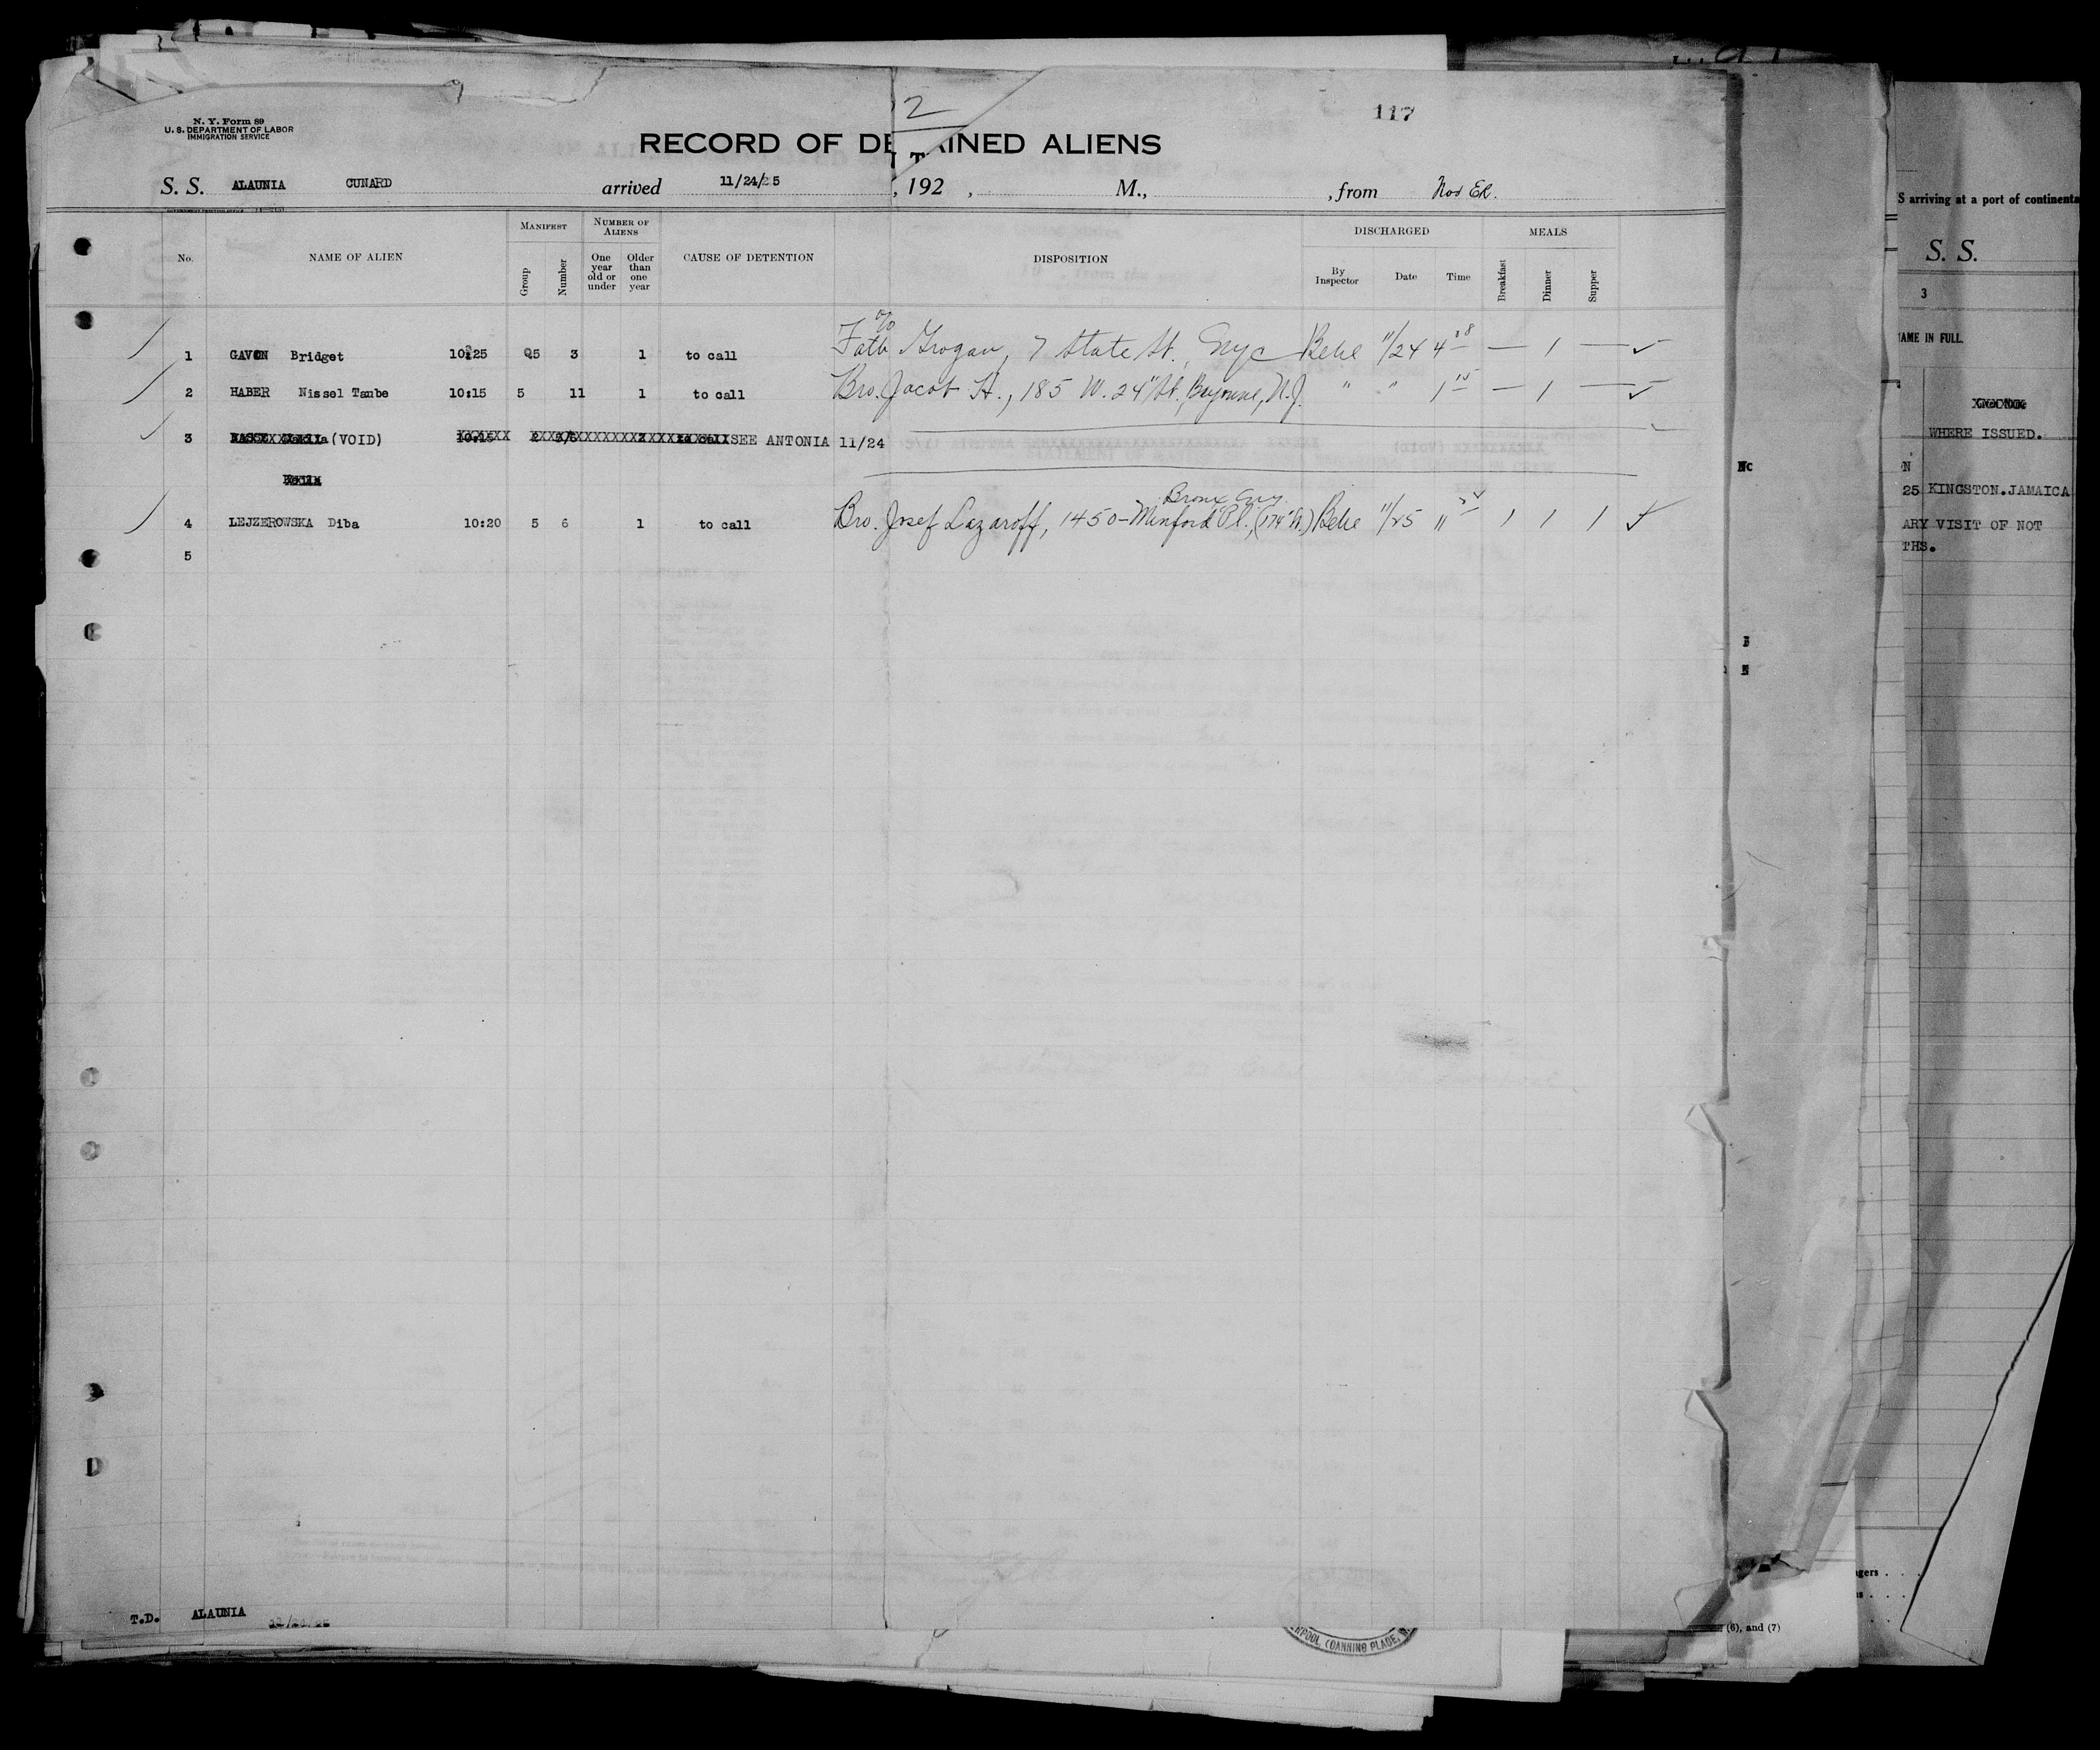 2
117
N. Y. Form 89
U. S. DEPARTMENT OF LABOR
IMMIGRATION SERVICE
RECORD OF DETAINED ALIENS
S. S. ALAUNIA CUNARD arrived 11/24/25, 192 , M., , from
No. NAME OF ALIEN MANIFEST Group Number NUMBER OF ALIENS One year old or under Older than one year CAUSE OF DETENTION DISPOSITION DISCHARGED By Inspector Date Time MEALS Breakfast Dinner Supper
c/o
1 GAVON Bridget 10:25 5 3 1 to call Fath Grogan, 7 State St. NYC 11/24 4 — 1 — ✓
2 HABER Nissel Taube 10:15 5 11 1 to call Bro. Jacob H., 185 W. 24" St., Bayonne, N.J. " " 1 15 — 1 — ✓
3 (VOID) SEE ANTONIA 11/24
Bronx
4 LEJZEROWSKA Diba 10:20 5 6 1 to call Bro. Josef Lazaroff, 1450 - Minford Pl., (174" St.) 11/25 11 1 1 1 ✓
5
T.D. ALAUNIA
S arriving at a port of continenta
S. S.
3
AME IN FULL.
WHERE ISSUED.
N
25 KINGSTON.JAMAICA
ARY VISIT OF NOT
THS.
(6), and (7)
RPOOL (CANNING PLACE)